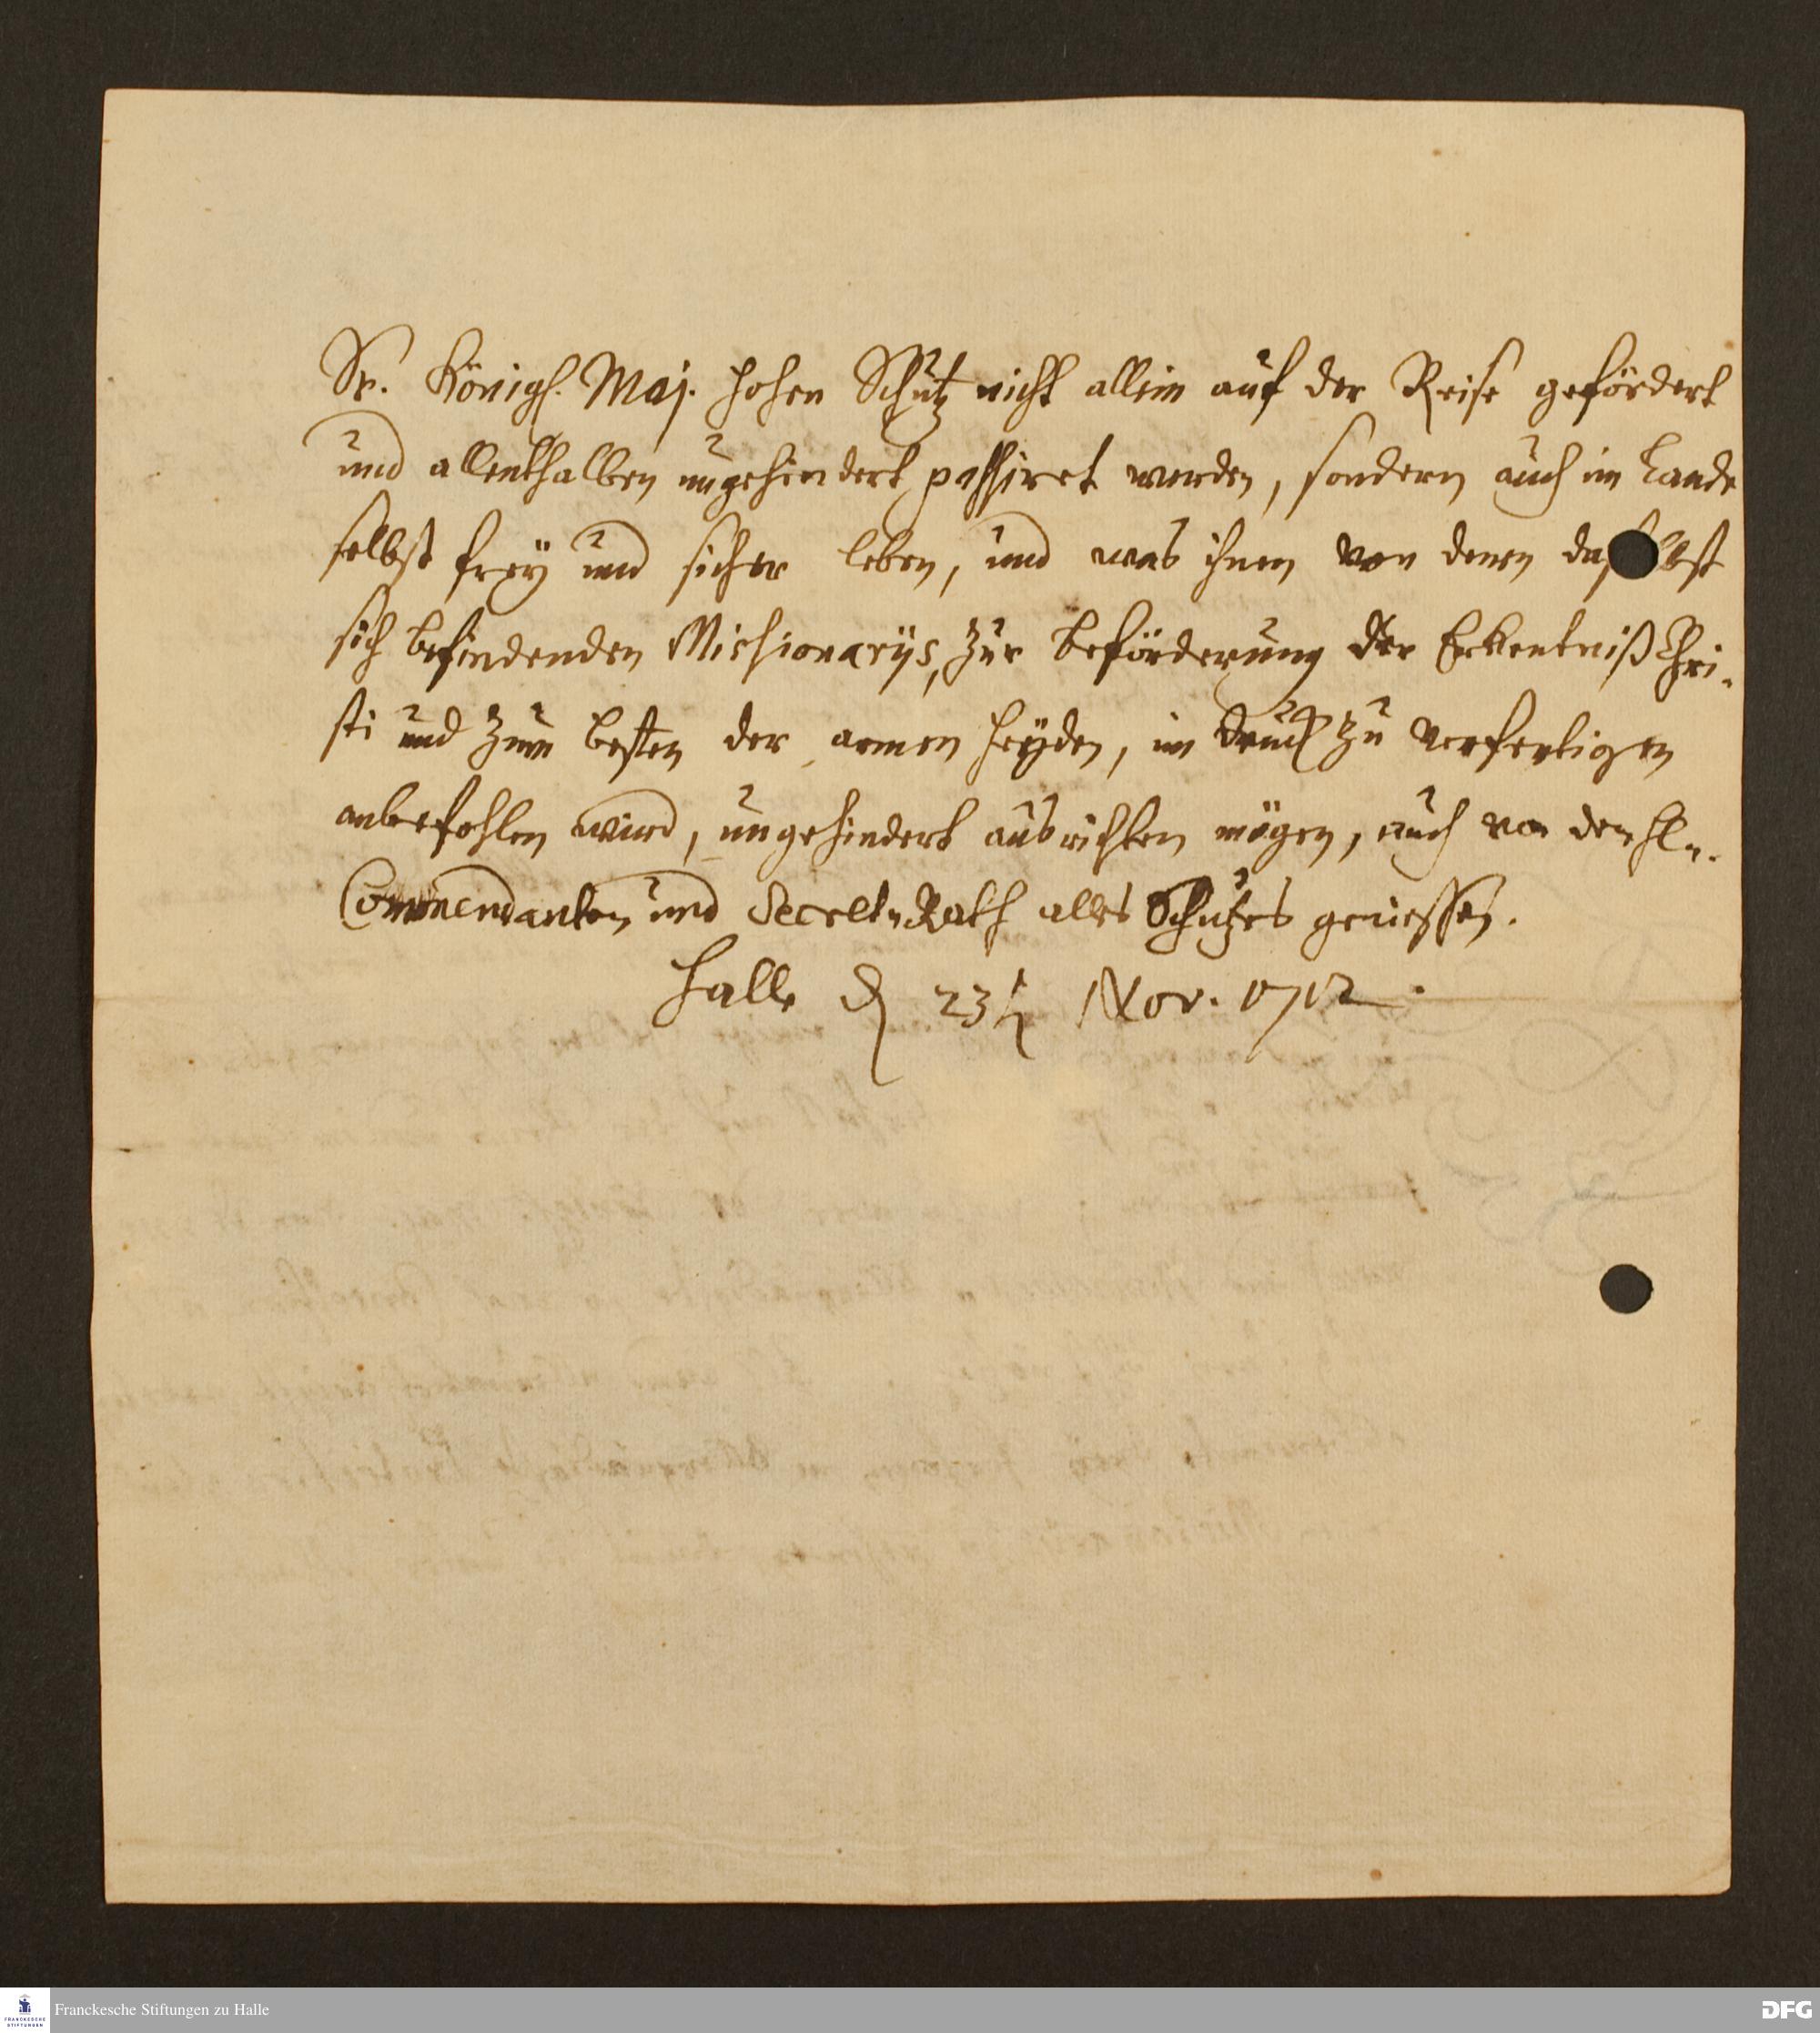 Sr. Königl. Maj. hohen Schutz nicht allein auf der Reise gefördert
und allenthalben ungehindert passiret werden, sondern auch im Lande
selbst frey und sicher leben, und was ihnen von denen daselbst
sich befindenden Missionariis, zur Beförderung der Erkentniß Chri-
sti und zum besten der armen Heyden, im Druck zu verfertigen
anbefohlen wird, ungehindert ausrichten mögen, auch von den
Commendanten und Secret-Rath alles Schutzes geniessen.
Halle d 23 Nov. 1712.
Franckesche Stiftungen zu Halle
FRANCKESCHE
STIFTUNGEN
DFG